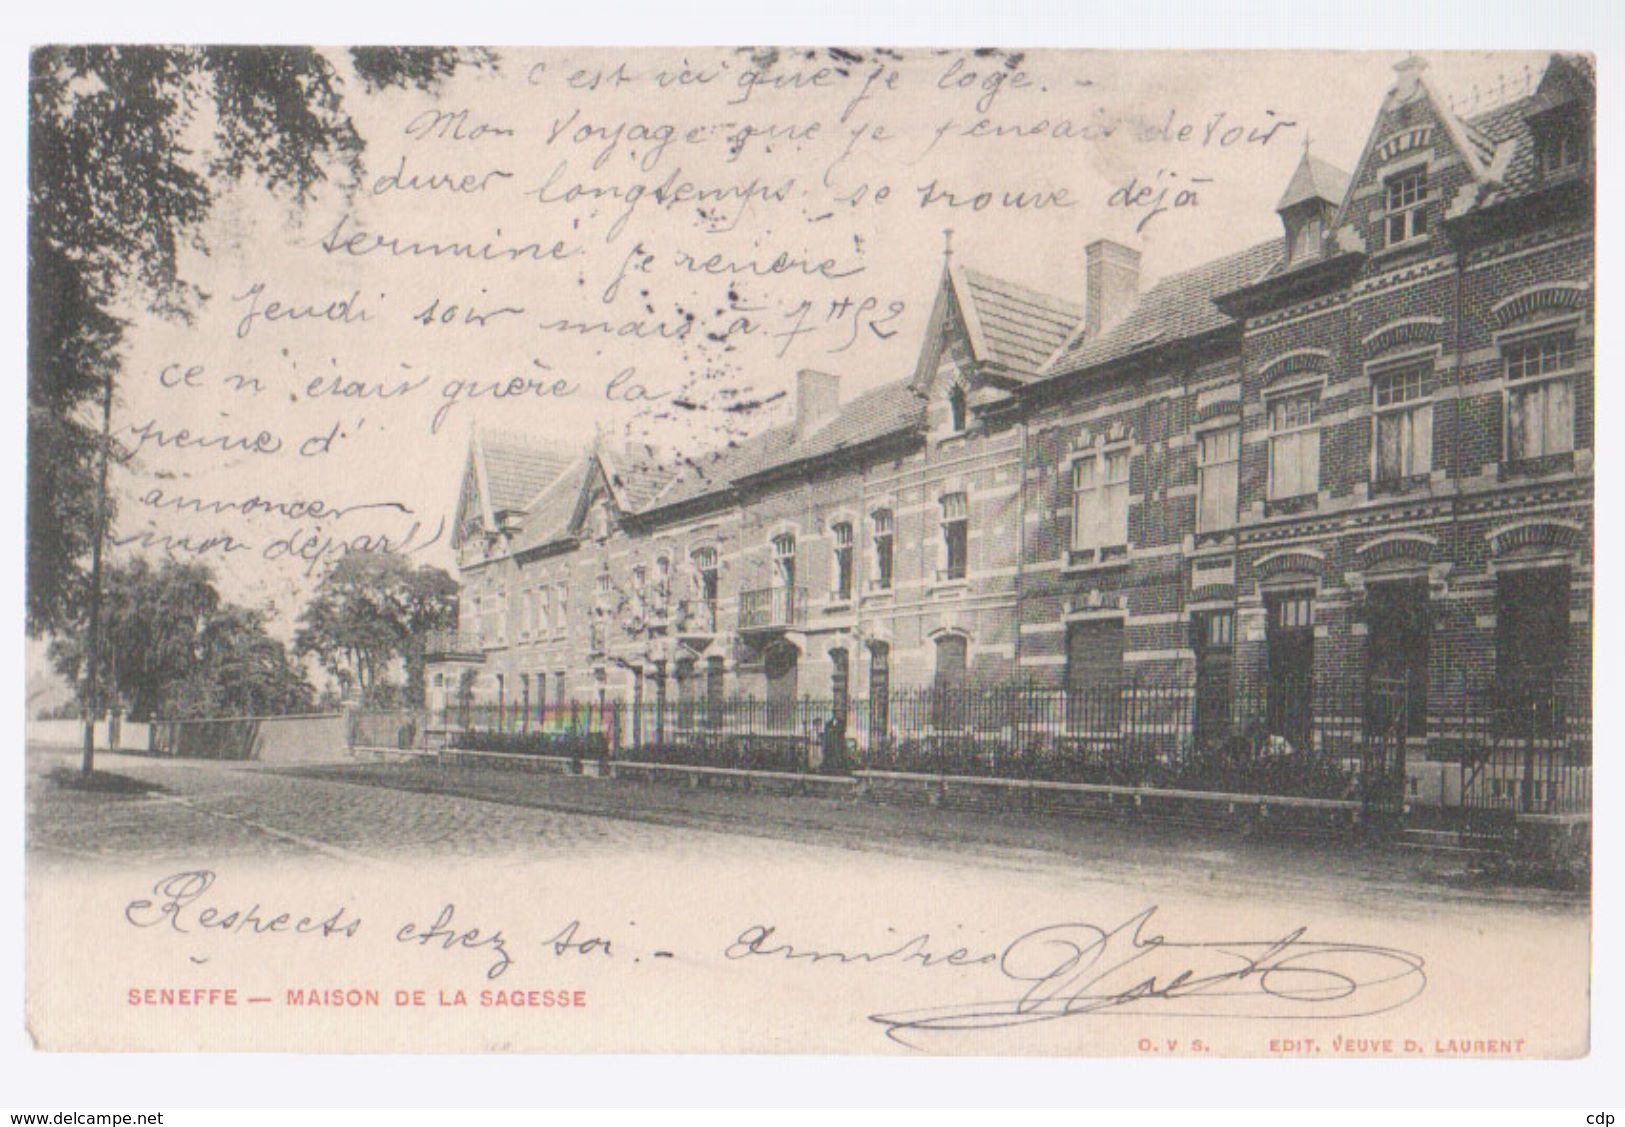 c'est ici que je loge. -
Mon voyage que je pensais devoir
durer longtemps se trouve déjà
terminé. Je rentre
Jeudi soir mais à 7 H 52
ce n'étais guère la
peine d'
annoncer
mon départ
Respects chez toi. - Amitiés
SENEFFE — MAISON DE LA SAGESSE
O. V S. EDIT. VEUVE D. LAURENT
www.delcampe.net
cdp